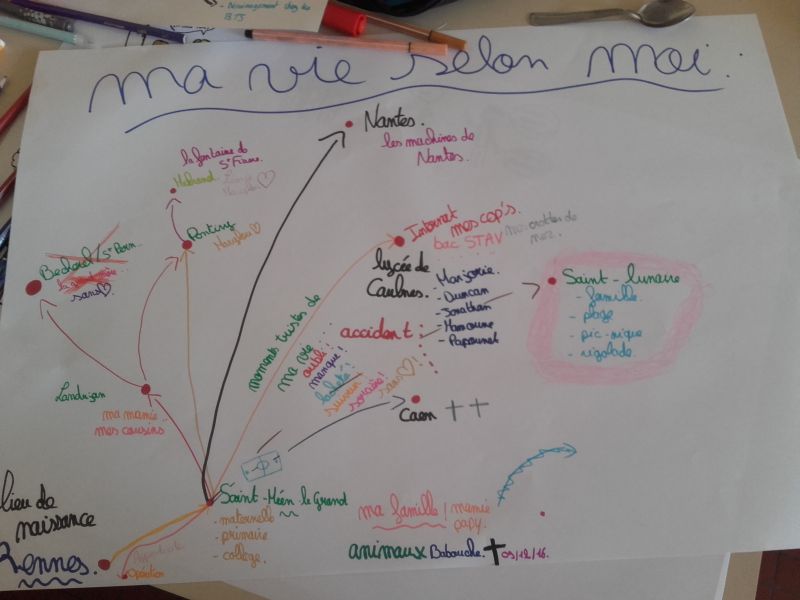 - Déménagement chez les
BTS
ma vie selon moi.
Nantes.
les machines de
Nantes.
la fontaine de
St Fiacre.
Melrand.
Pontivy
Becherel / St Pern...
sans
Internet mes cop's.
bac STAV
mes crottes de
nez.
lycée de
Caulnes.
- Marjorie.
- Duncan
- Jonathan
- Mamoune
- Papounet
Saint-Lunaire
- famille.
- plage
- pic-nique
- rigolade.
accident :
moments tristes de
ma vie
oubli!
manque!
sans
Caen ††
Landujan
ma mamie..
mes cousins
lieu de
naissance
Rennes.
Opération
Saint-Méen-le-Grand
- maternelle
- primaire
- collège.
ma famille / mamie
papy.
animaux Babouche. † 03/12/16.